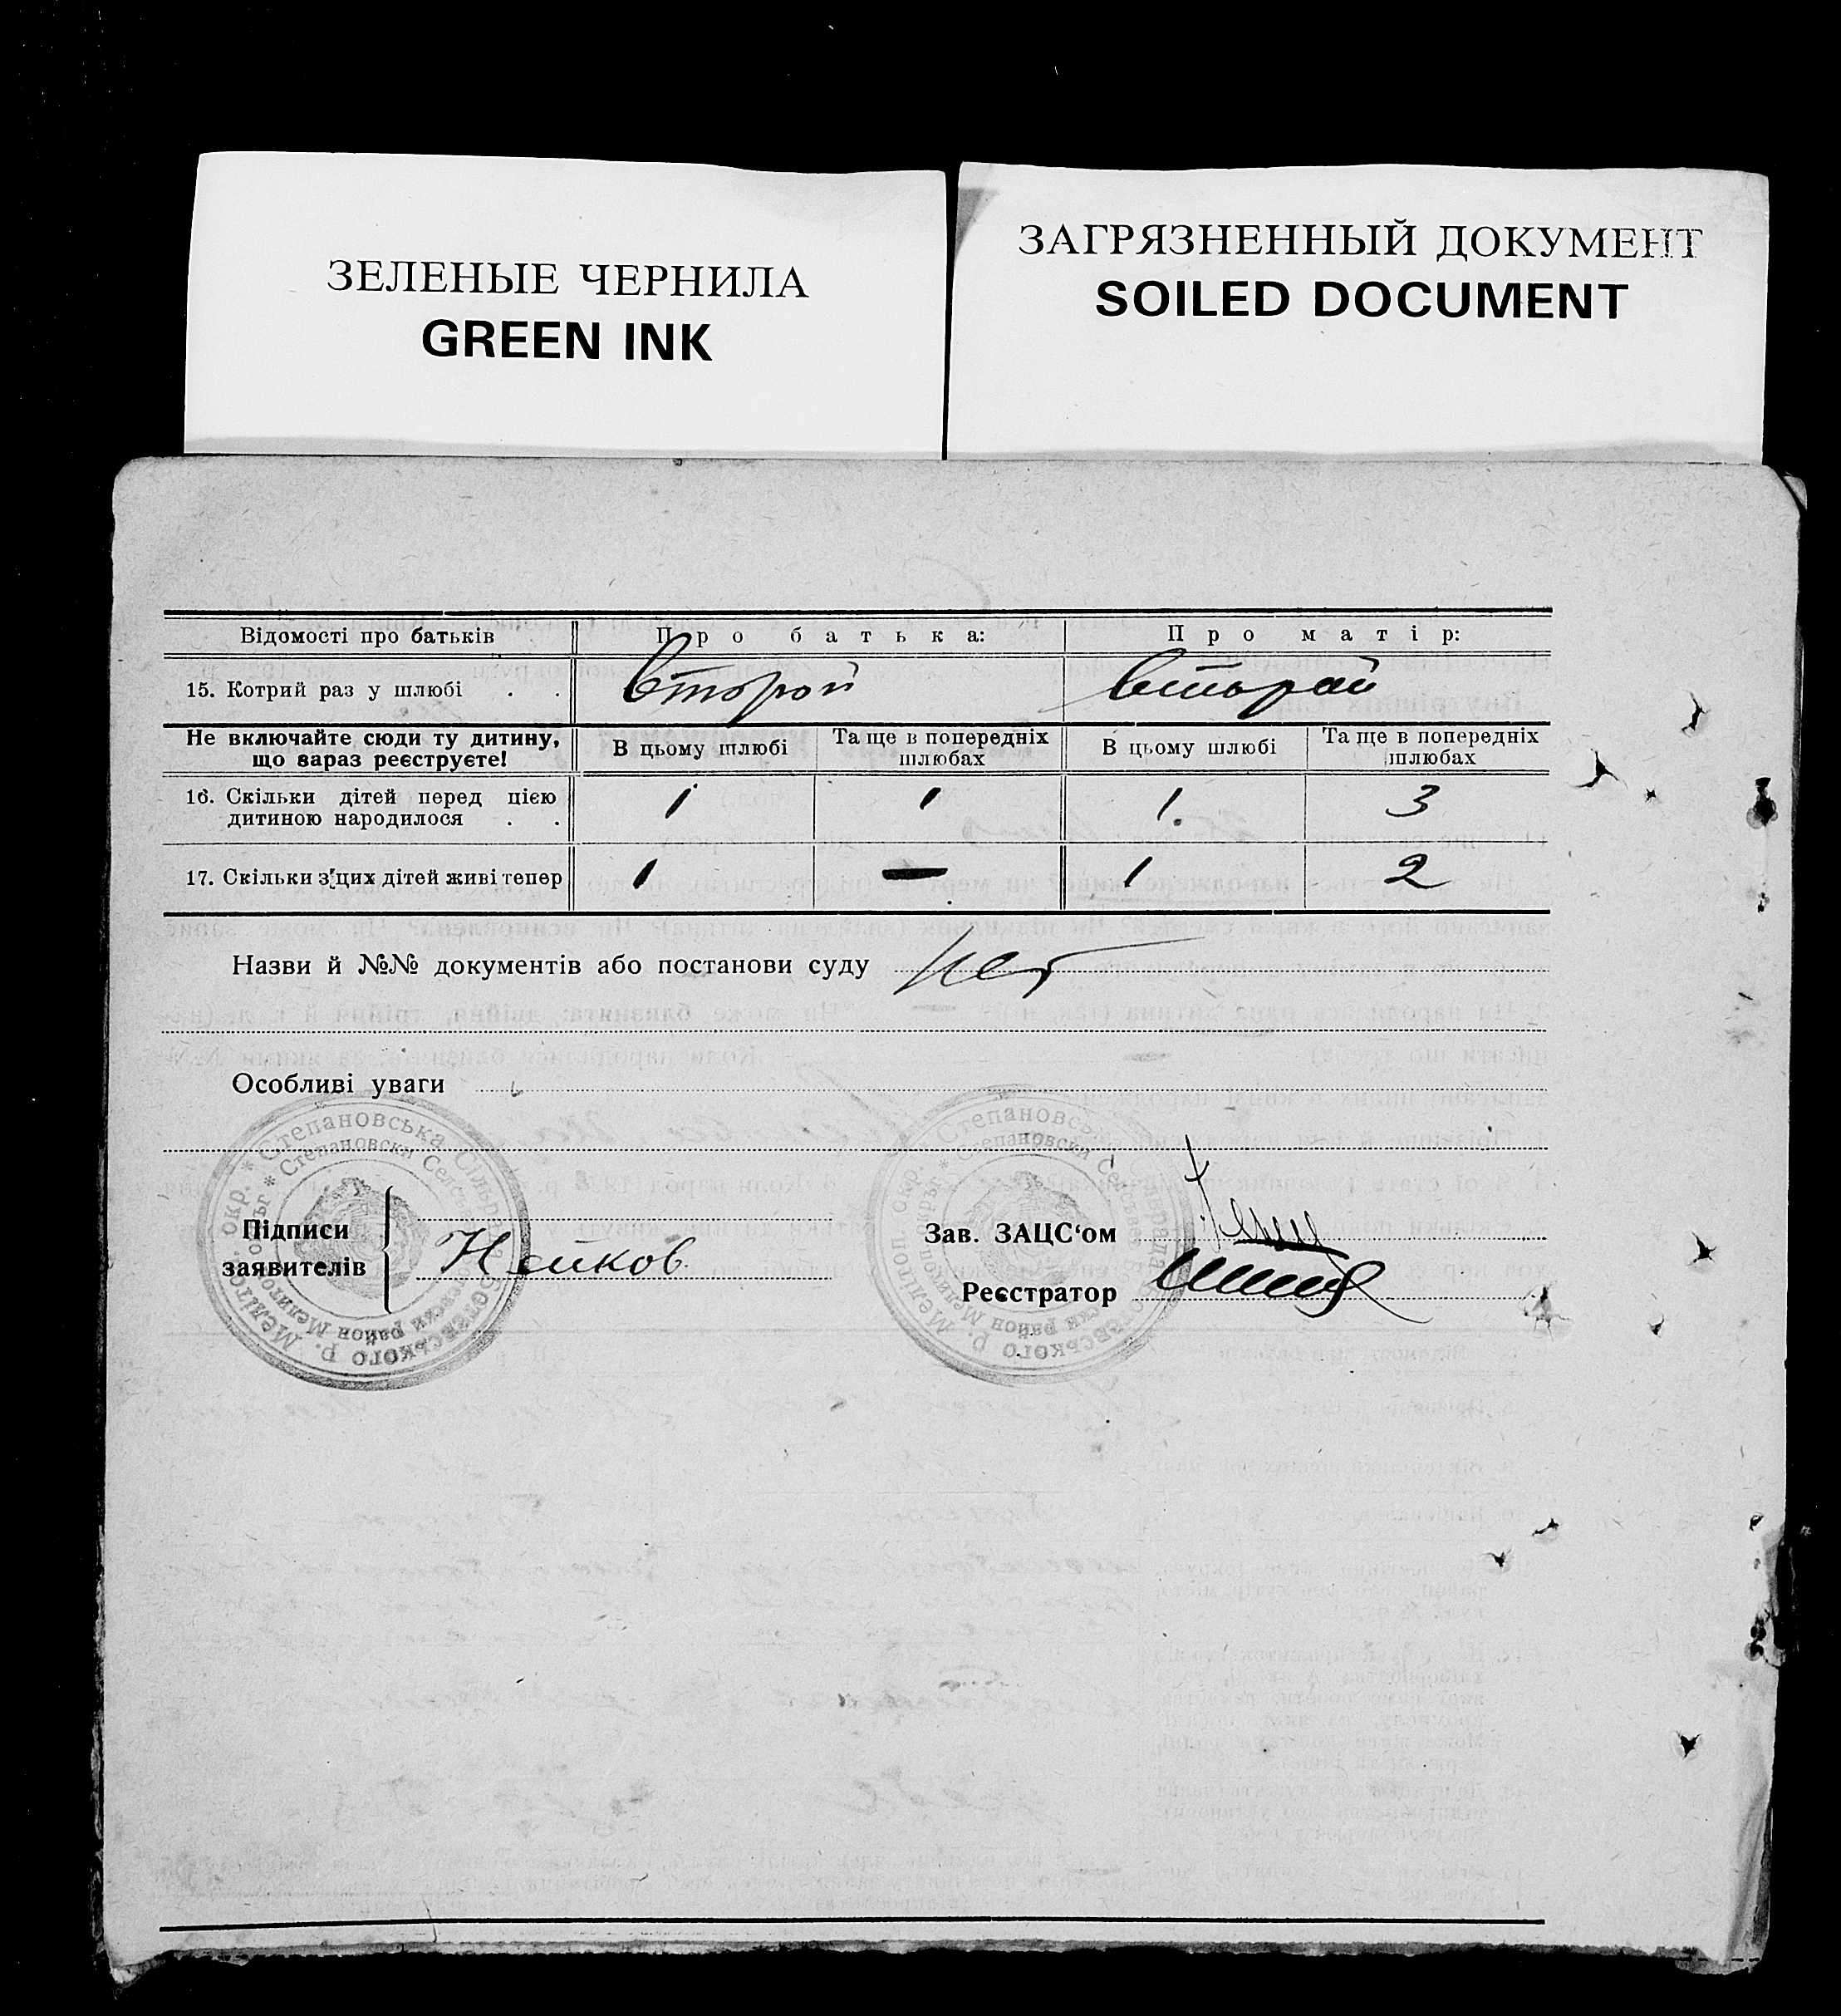 ЗЕЛЕНЫЕ ЧЕРНИЛА
GREEN INK
ЗАГРЯЗНЕННЫЙ ДОКУМЕНТ
SOILED DOCUMENT
Відомості про батьків Про батька: Про матір:
15. Котрий раз у шлюбі . . Второй Вторай
Не включайте сюди ту дитину, що зараз реєструєте!
В цьому шлюбі Та ще в попередніх шлюбах В цьому шлюбі Та ще в попередніх шлюбах
16. Скільки дітей перед цією
дитиною народилося . . 1 1 1. 3
17. Скільки з цих дітей живі тепер 1 — 1 2
Назви й №№ документів або постанови суду нет
Особливі уваги
Степановська Сільрада Мелітоп. окр.
Степановски Селсъвет
Підписи
заявителів
Нейков
Зав. ЗАЦС‘ом
Реєстратор